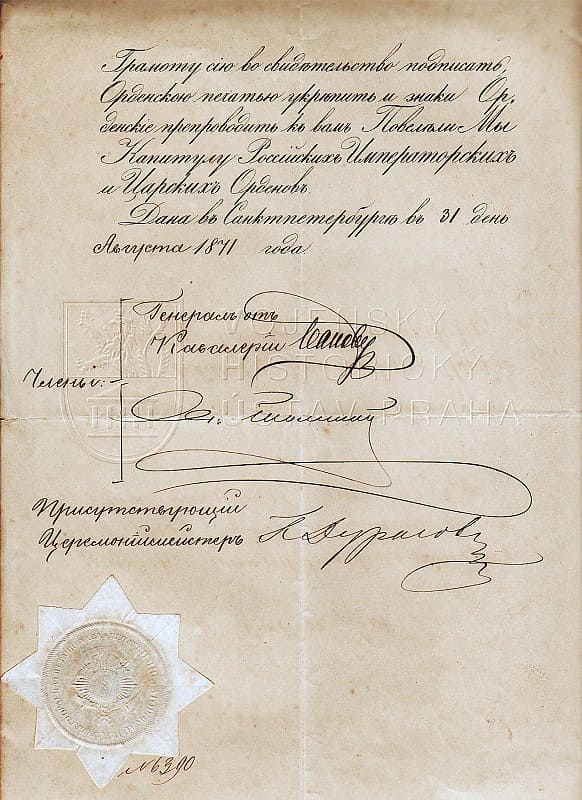 Грамоту сію во свидѣтельство подписать,
Орденскою печатью укрѣпить и знаки Ор-
денскіе препроводить къ вамъ Повелѣли Мы
Капитулу Россійскихъ Императорскихъ
и Царскихъ Орденовъ.
Дана въ Санктпетербургѣ въ 31 день
Августа 1871 года.
Генералъ отъ
Кавалеріи
Члены:
VOJENSKÝ
HISTORICKÝ
ÚSTAV PRAHA
Присутствующій
Церемоніймейстеръ
№ 6390